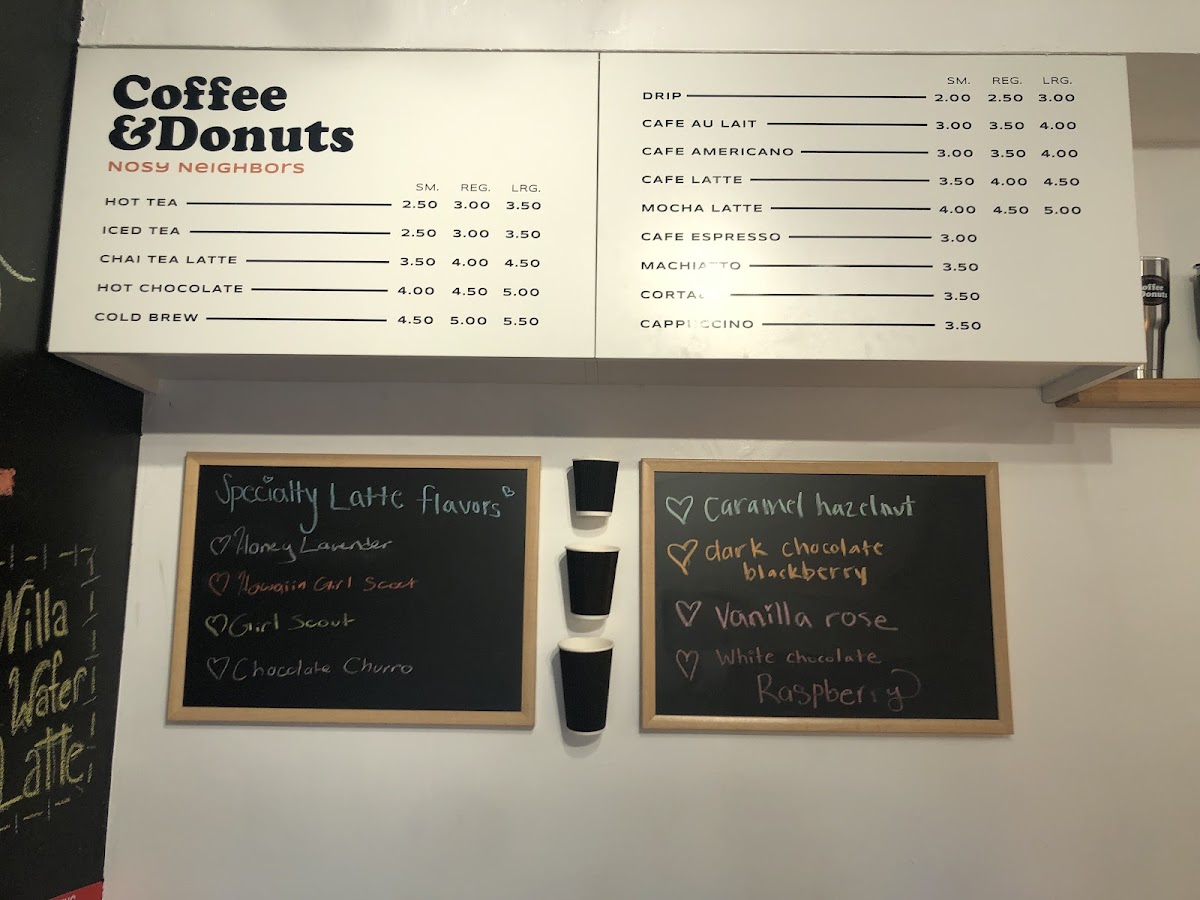 Coffee
&Donuts
Nosy Neighbors
SM. REG. LRG.
HOT TEA 2.50 3.00 3.50
ICED TEA 2.50 3.00 3.50
CHAI TEA LATTE 3.50 4.00 4.50
HOT CHOCOLATE 4.00 4.50 5.00
COLD BREW 4.50 5.00 5.50
SM. REG. LRG.
DRIP 2.00 2.50 3.00
CAFE AU LAIT 3.00 3.50 4.00
CAFE AMERICANO 3.00 3.50 4.00
CAFE LATTE 3.50 4.00 4.50
MOCHA LATTE 4.00 4.50 5.00
CAFE ESPRESSO 3.00
MACHIATTO 3.50
CORTADO 3.50
CAPPUCCINO 3.50
Coffee
Donuts
Specialty Latte flavors
Honey Lavender
Howaiin Girl Scout
Girl Scout
Chocolate Churro
Caramel hazelnut
dark chocolate
blackberry
Vanilla rose
White chocolate
Raspberry
Nilla
Wafer
Latte